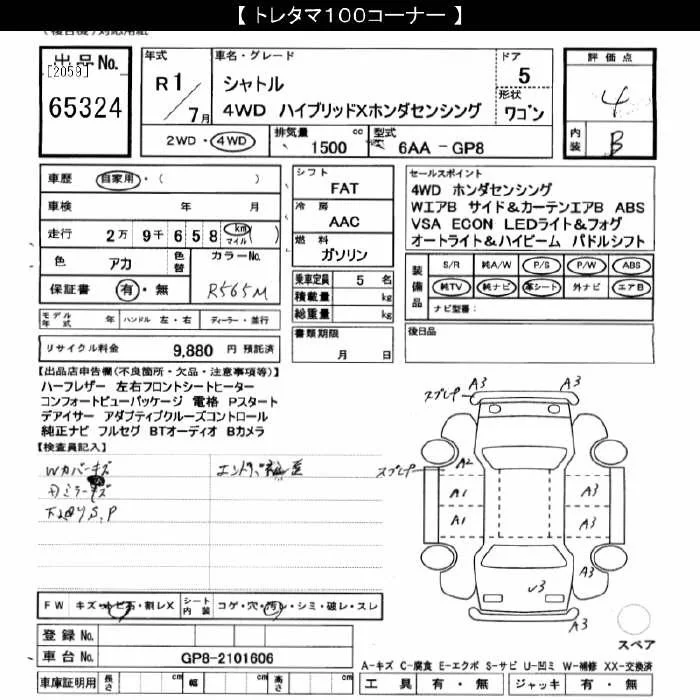 【 トレタマ100コーナー 】
出品No.
[2059]
65324
年式
R1/7月
車名・グレード
シャトル
4WD ハイブリッドXホンダセンシング
ドア
5
形状
ワゴン
評価点
4
内装
B
2WD・4WD
排気量
1500 cc
型式
6AA-GP8
車歴 自家用・( )
車検 年 月
走行 2万 9千 658 km マイル ( )
色 アカ 色替 カラーNo.
保証書 有・無 R565M
モデル年式 年 ハンドル 左・右 ディーラー・並行
リサイクル料金 9,880 円 預託済
シフト
FAT
冷房
AAC
燃料
ガソリン
乗車定員 5 名
積載量 kg
総重量 kg
書類期限
月 日
セールスポイント
4WD ホンダセンシング
WエアB サイド&カーテンエアB ABS
VSA ECON LEDライト&フォグ
オートライト&ハイビーム パドルシフト
装備品
S/R 純A/W P/S P/W ABS
純TV 純ナビ 革シート 外ナビ エアB
ナビ型番:
後日品
【出品店申告欄(不良箇所・欠品・注意事項等)】
ハーフレザー 左右フロントシートヒーター
コンフォートビューパッケージ 電格 Pスタート
デアイサー アダプティブクルーズコントロール
純正ナビ フルセグ BTオーディオ Bカメラ
【検査員記入】
Wカバーキズ
ミラーキズ
下廻りS,P
A3 A3
A2
A1 A3
A1 A3
A3
U3
A3
スペア
FW キズ・トビ石・割レX シート内装 コゲ・穴・汚レ・シミ・破レ・スレ
登録No.
車台No. GP8-2101606
車庫証明用 長さ cm 幅 cm 高さ cm
A-キズ C-腐食 E-エクボ S-サビ U-凹ミ W-補修 XX-交換済
工具 有・無 ジャッキ 有・無